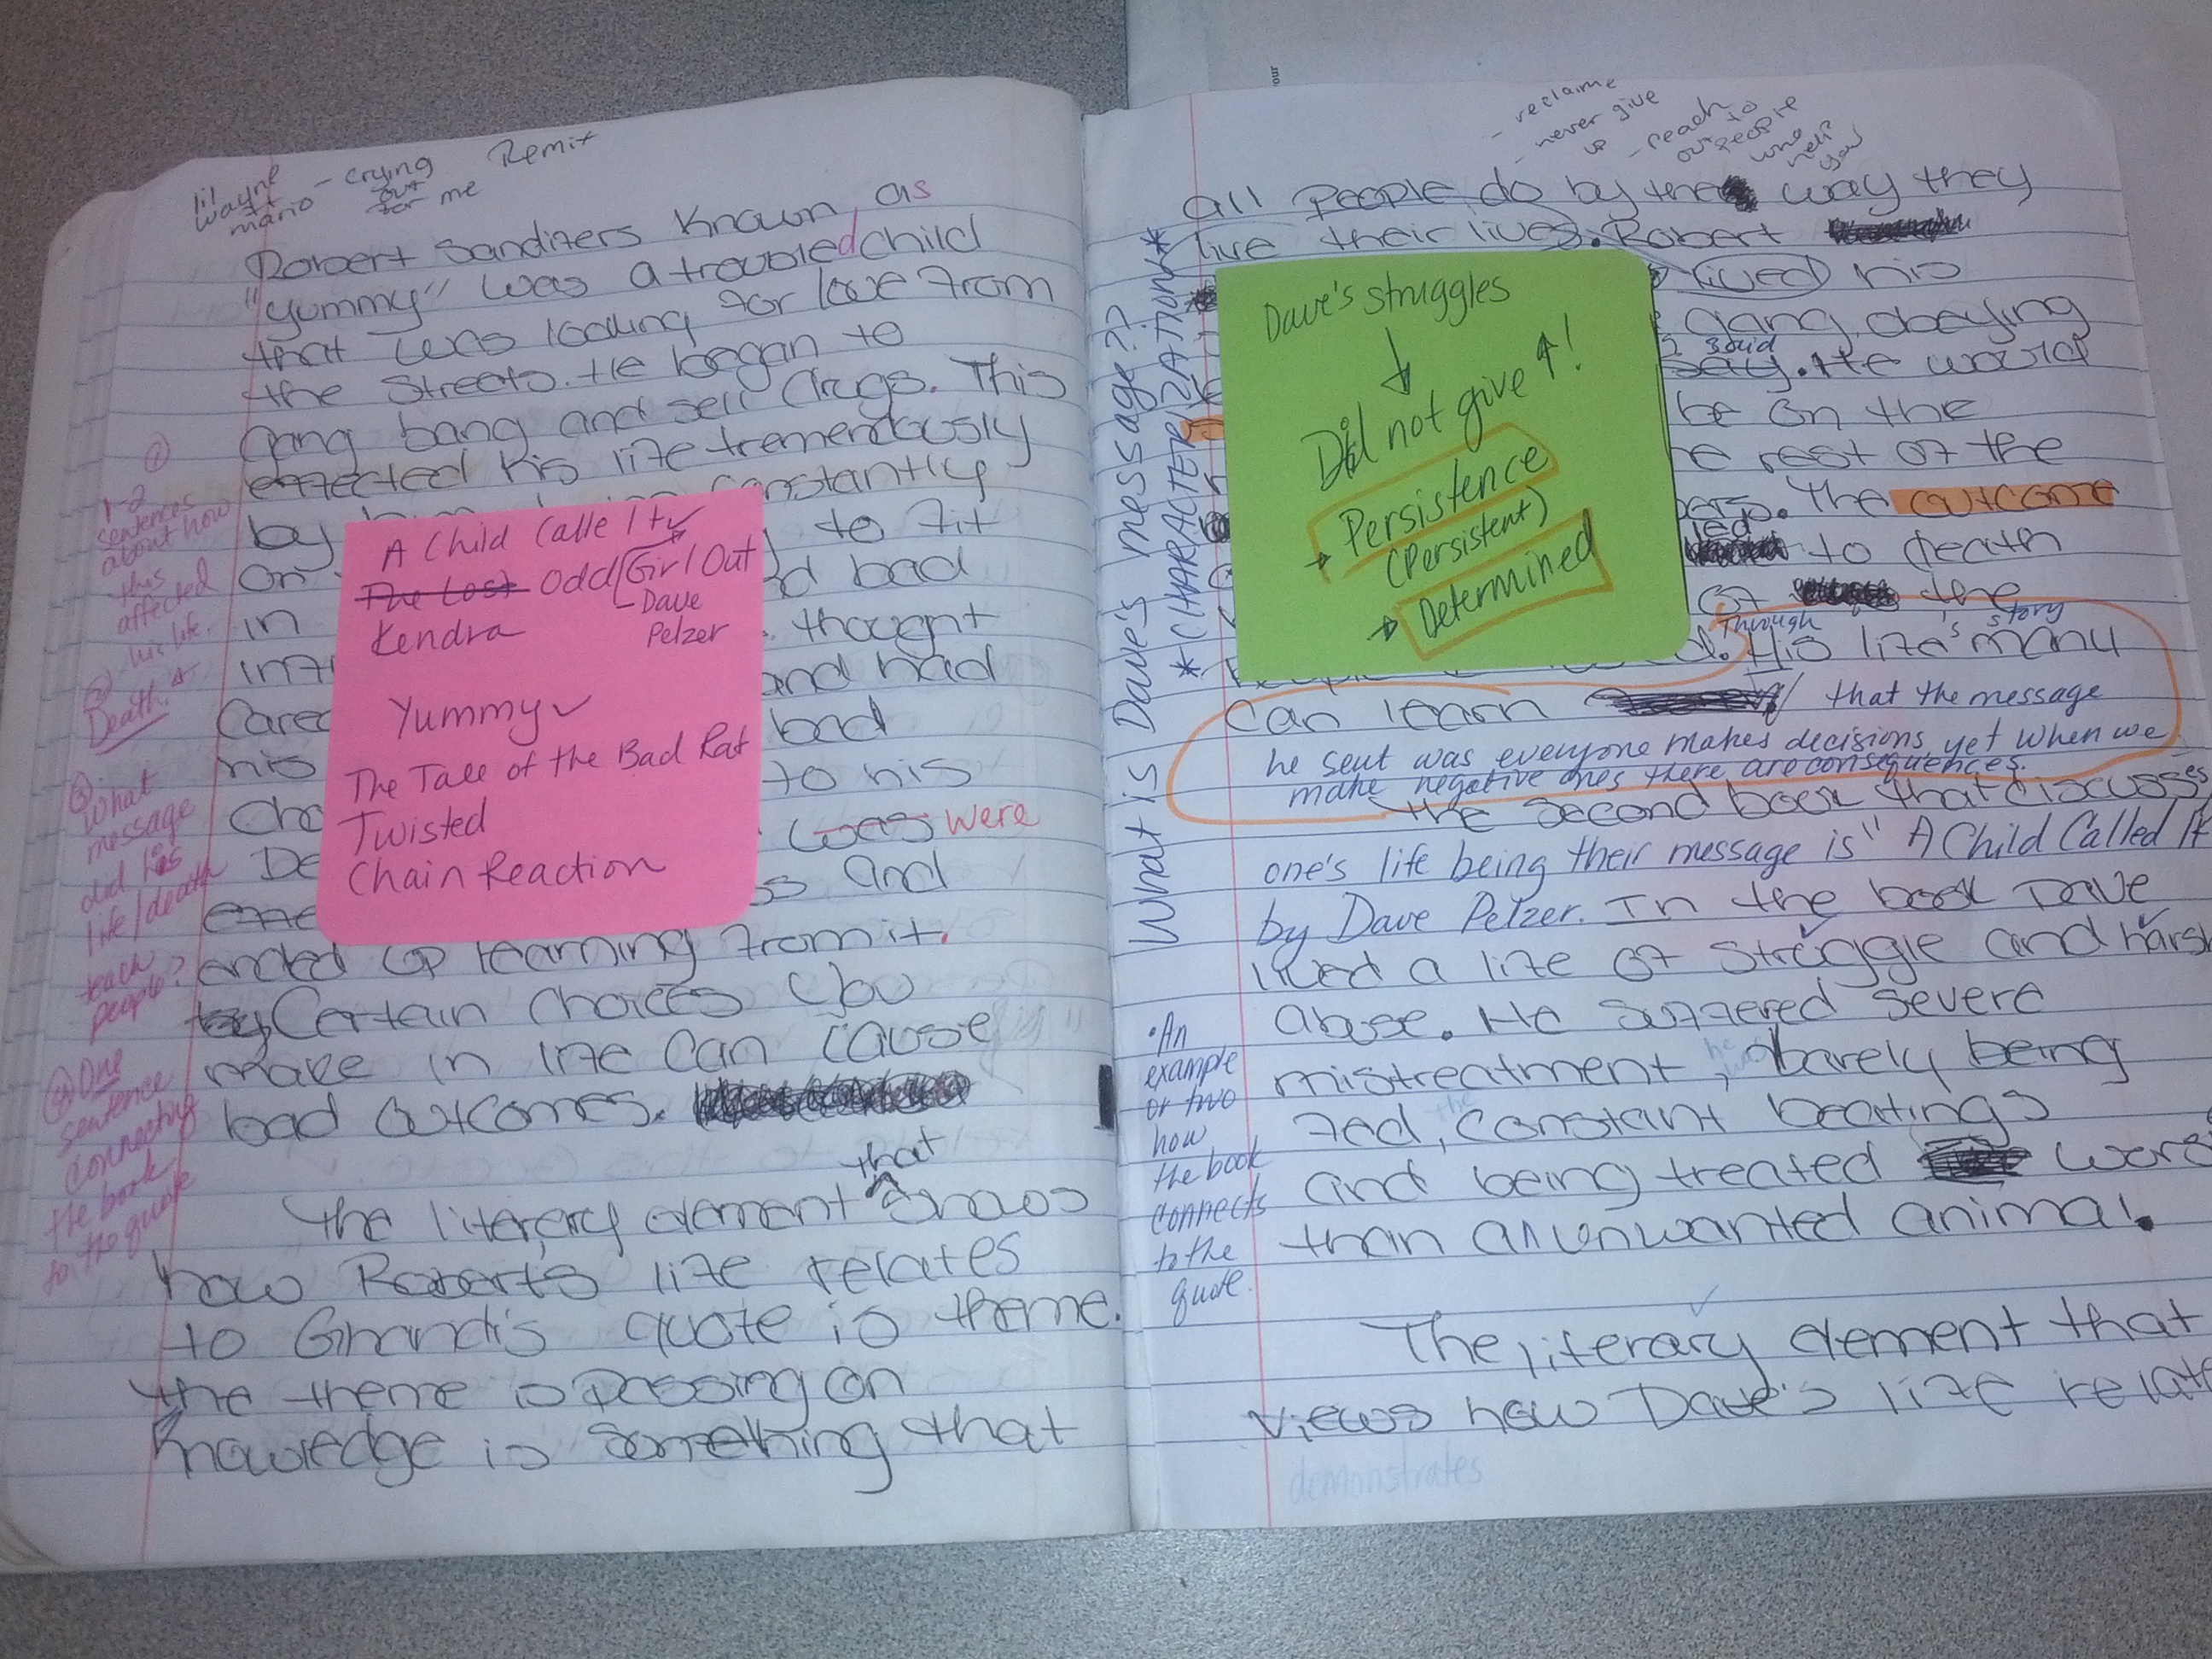 lil wayne
mario - crying out for me Remix
Robert Sandifers Known, as
"yummy" was a troubled child
that was looking for love from
the streets. He began to
gang bang and sell drugs. This
effected his life tremendously
by constantly
on to fit
in bad
thought
Cared and had
his bad
to his
was were
and
ended up learning from it.
Certain choices you
make in life can cause
bad outcomes.
that
The literary element shows
how Roberts life relates
to Ghandi's quote is theme.
the theme is passing on
knowledge is something that
①
1-2
sentences
about how
this
affected
his life.
②
Death.
③
What
message
did his
life/death
teach
people?
④ One
sentence
connecting
the book
to the quote
A Child Calle It ✓
The Lost Odd Girl Out
- Dave
Pelzer
Kendra
Yummy ✓
The Tale of the Bad Rat
Twisted
Chain Reaction
- reclaime
- never give up
- reach out to people who help you
all people do by the way they
live their lives. Robert
lived his
gang, obeying
said
say. He would
be on the
rest of the
The outcome
led to death
of the
Through 's story
His life many
can learn that the message
he sent was everyone makes decisions, yet when we
make negative ones there are consequences.
the second book that discusses
one's life being their message is "A Child Called It
by Dave Pelzer. In the book Dave
lived a life of struggle and harsh
abuse. He suffered severe
mistreatment, barely being
the
fed, constant beatings
and being treated
than an unwanted animal.
The literary element that
views how Dave's life
demonstrates
What is Dave's message??
*CHARACTERIZATION*
• An
example
or two
how
the book
connects
to the
quote.
Dave's struggles
↓
Did not give ↑!
Persistence
(Persistent)
Determined
our